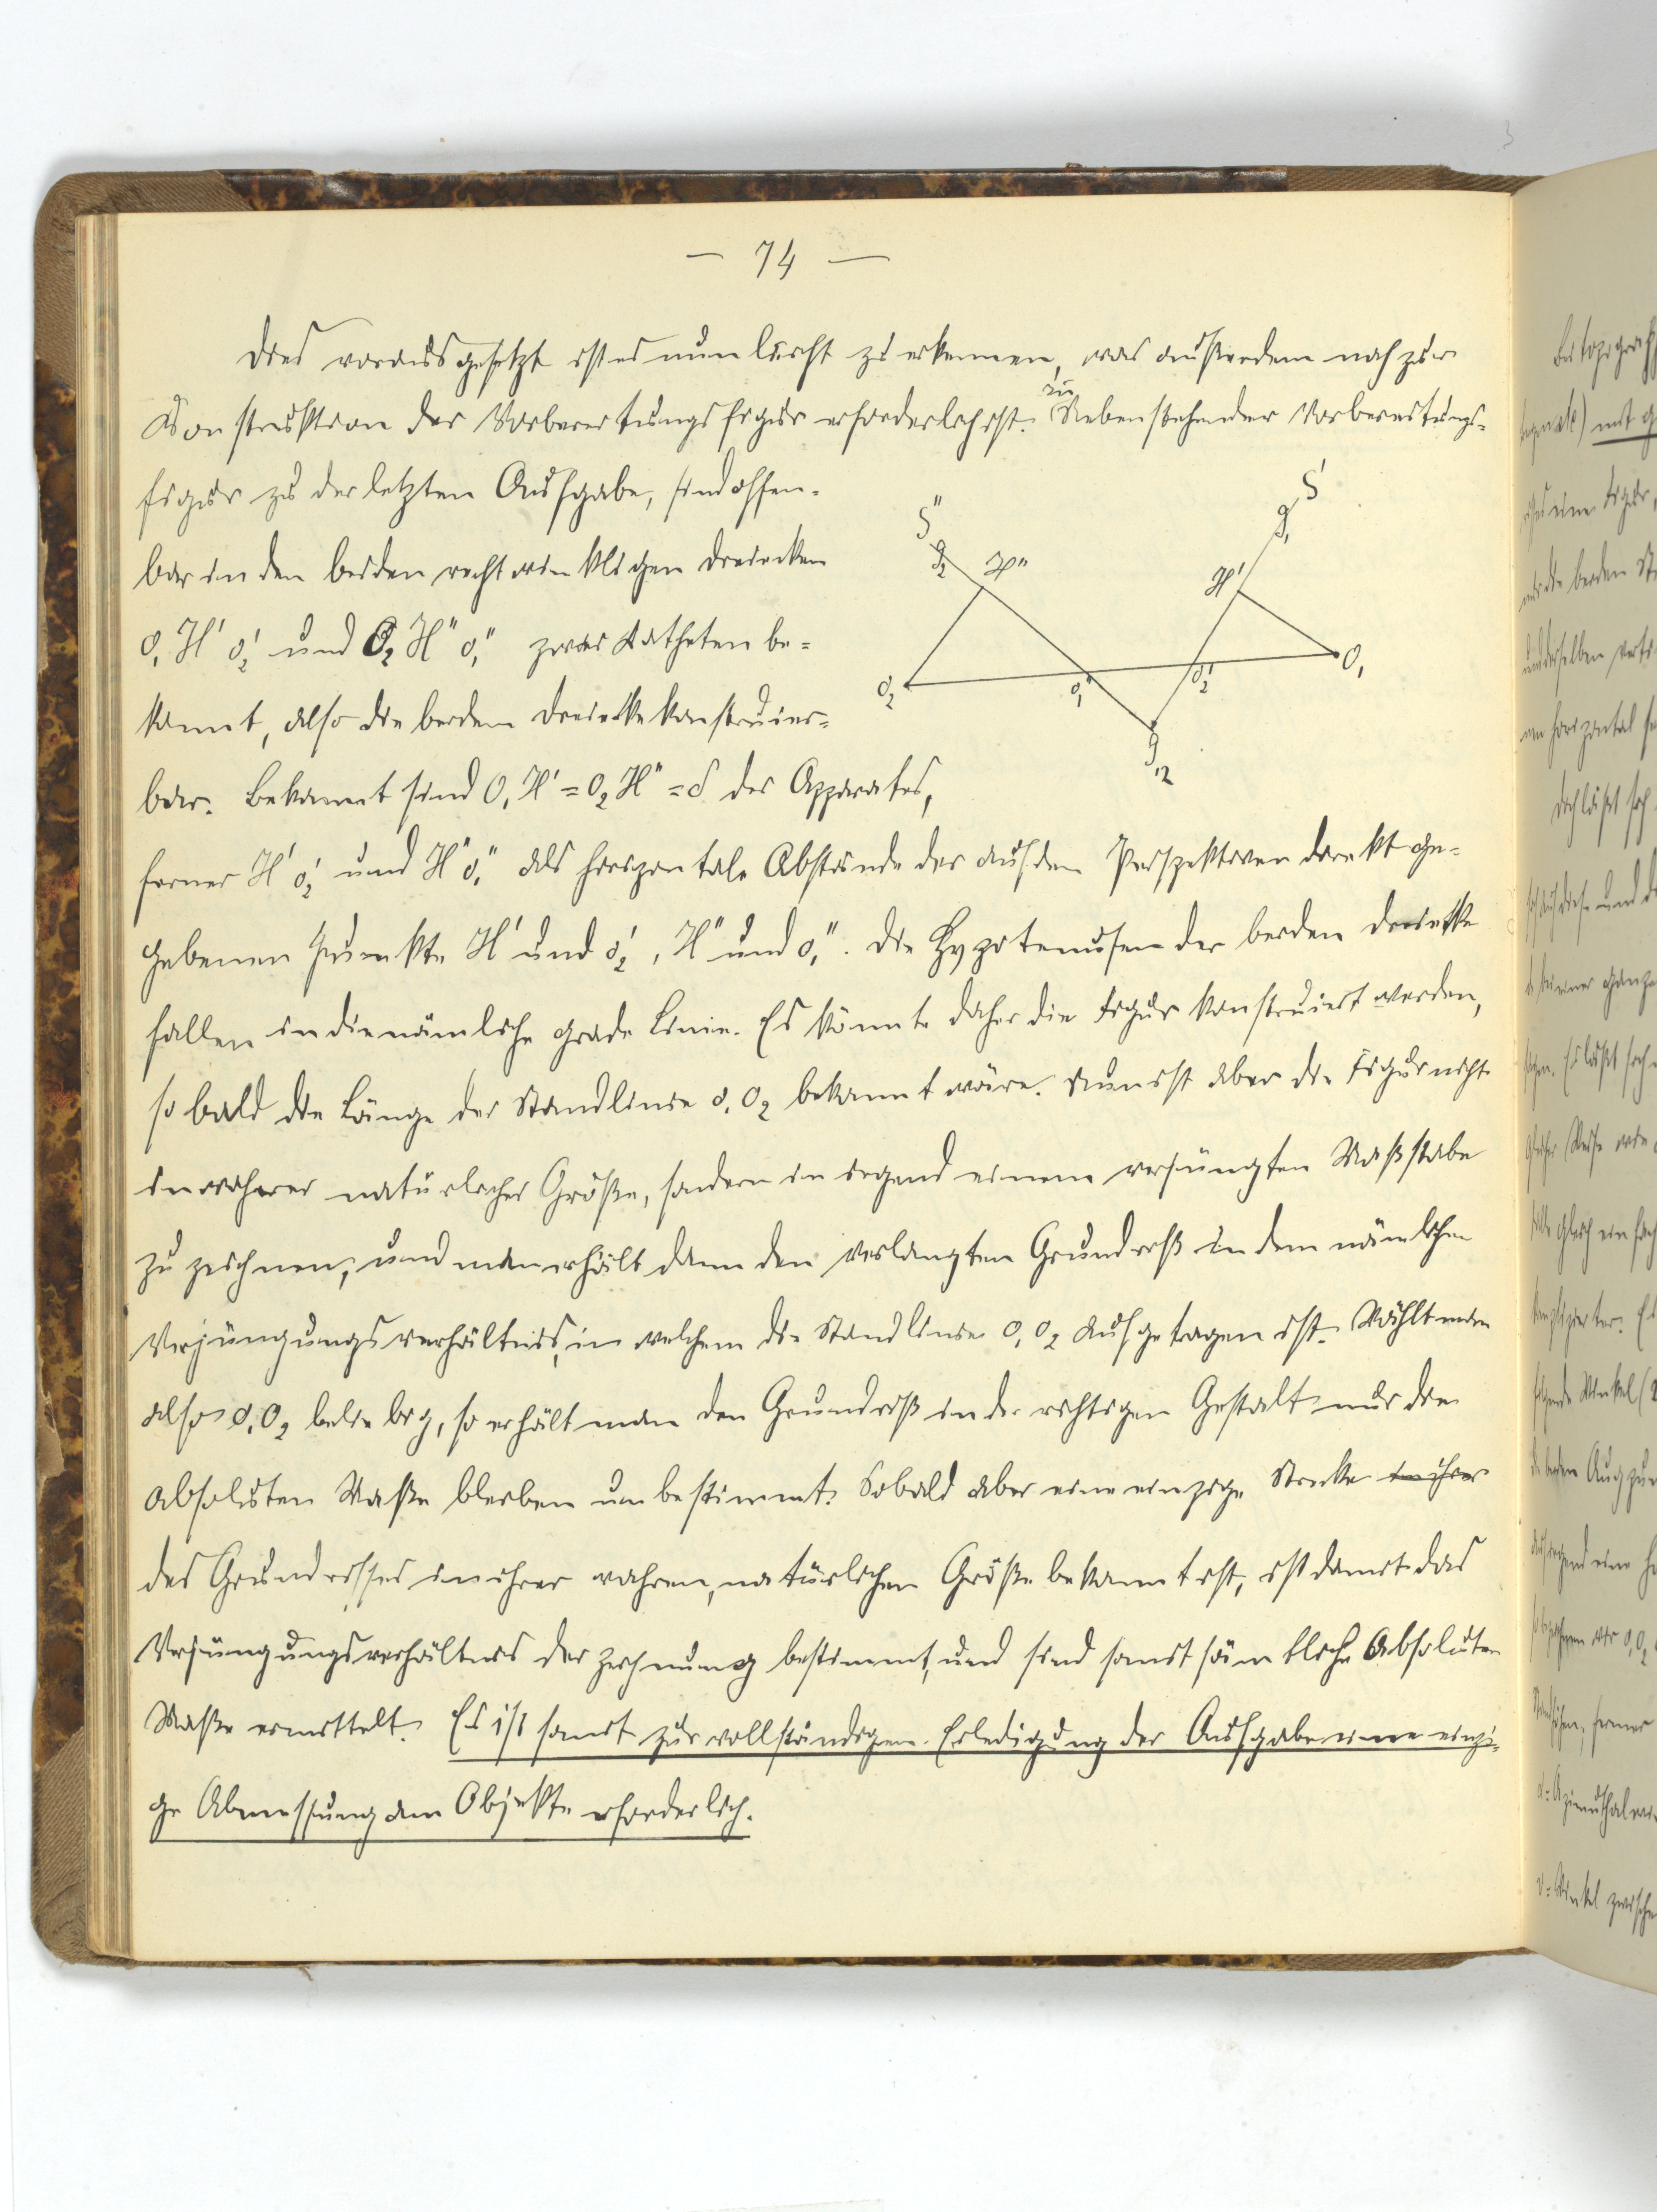 — 74 —
Dies vorausgesetzt ist es nun leicht zu erkennen, was außerdem noch zur
Konstruktion der Vorbereitungsfigur erforderlich ist. In Nebenstehender Vorbereitungs-
figur zu der letzten Aufgabe, sind offen-
bar in den beiden rechtwinkligen Dreiecken
O₁ H' o₂' und O₂ H" o₁" zwei Katheten be-
kannt, also die beiden Dreiecke konstruier-
bar. Bekannt sind O₁ H' = O₂ H" = δ des Apparates,
ferner H' o₂' und H" o₁" als horizontale Abstände der auf den Perspektiven direkt ge-
gebenen Punkte H' und o₂', H" und o₁". Die Hypotenusen der beiden Dreiecke
fallen in die nämliche grade Linie. Es könnte daher die Figur konstruiert werden,
sobald die Länge der Standlinie O₁ O₂ bekannt wäre. Nun ist aber die Figur nicht
in wahrer natürlicher Größe, sondern in irgend einem verjüngten Maßstabe
zu zeichnen, und man erhält dann den verlangten Grundriß in dem nämlichen
Verjüngungsverhältnis, in welchem die Standlinie O₁ O₂ aufgetragen ist. Wählt man
also O₁ O₂ beliebig, so erhält man den Grundriß in der richtigen Gestalt nur die
absoluten Maße bleiben unbestimmt. Sobald aber eine einzige Strecke in ihrer
des Grundrisses in ihrer wahren, natürlichen Größe bekannt ist, ist damit das
Verjüngungsverhältnis der Zeichnung bestimmt, und sind somit sämtliche absoluten
Maße ermittelt. Es ist somit zur vollständigen Erledigung der Aufgabe eine einzi-
ge Abmessung am Objekte erforderlich.
S"
g₂
H"
S'
g₁
H'
O₂
o₁"
o₂'
O₁
g₁₂